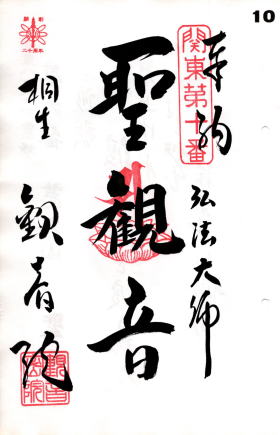 10
奉納
弘法大師
関東第十番
聖観音
桐生
観音院
二十周年